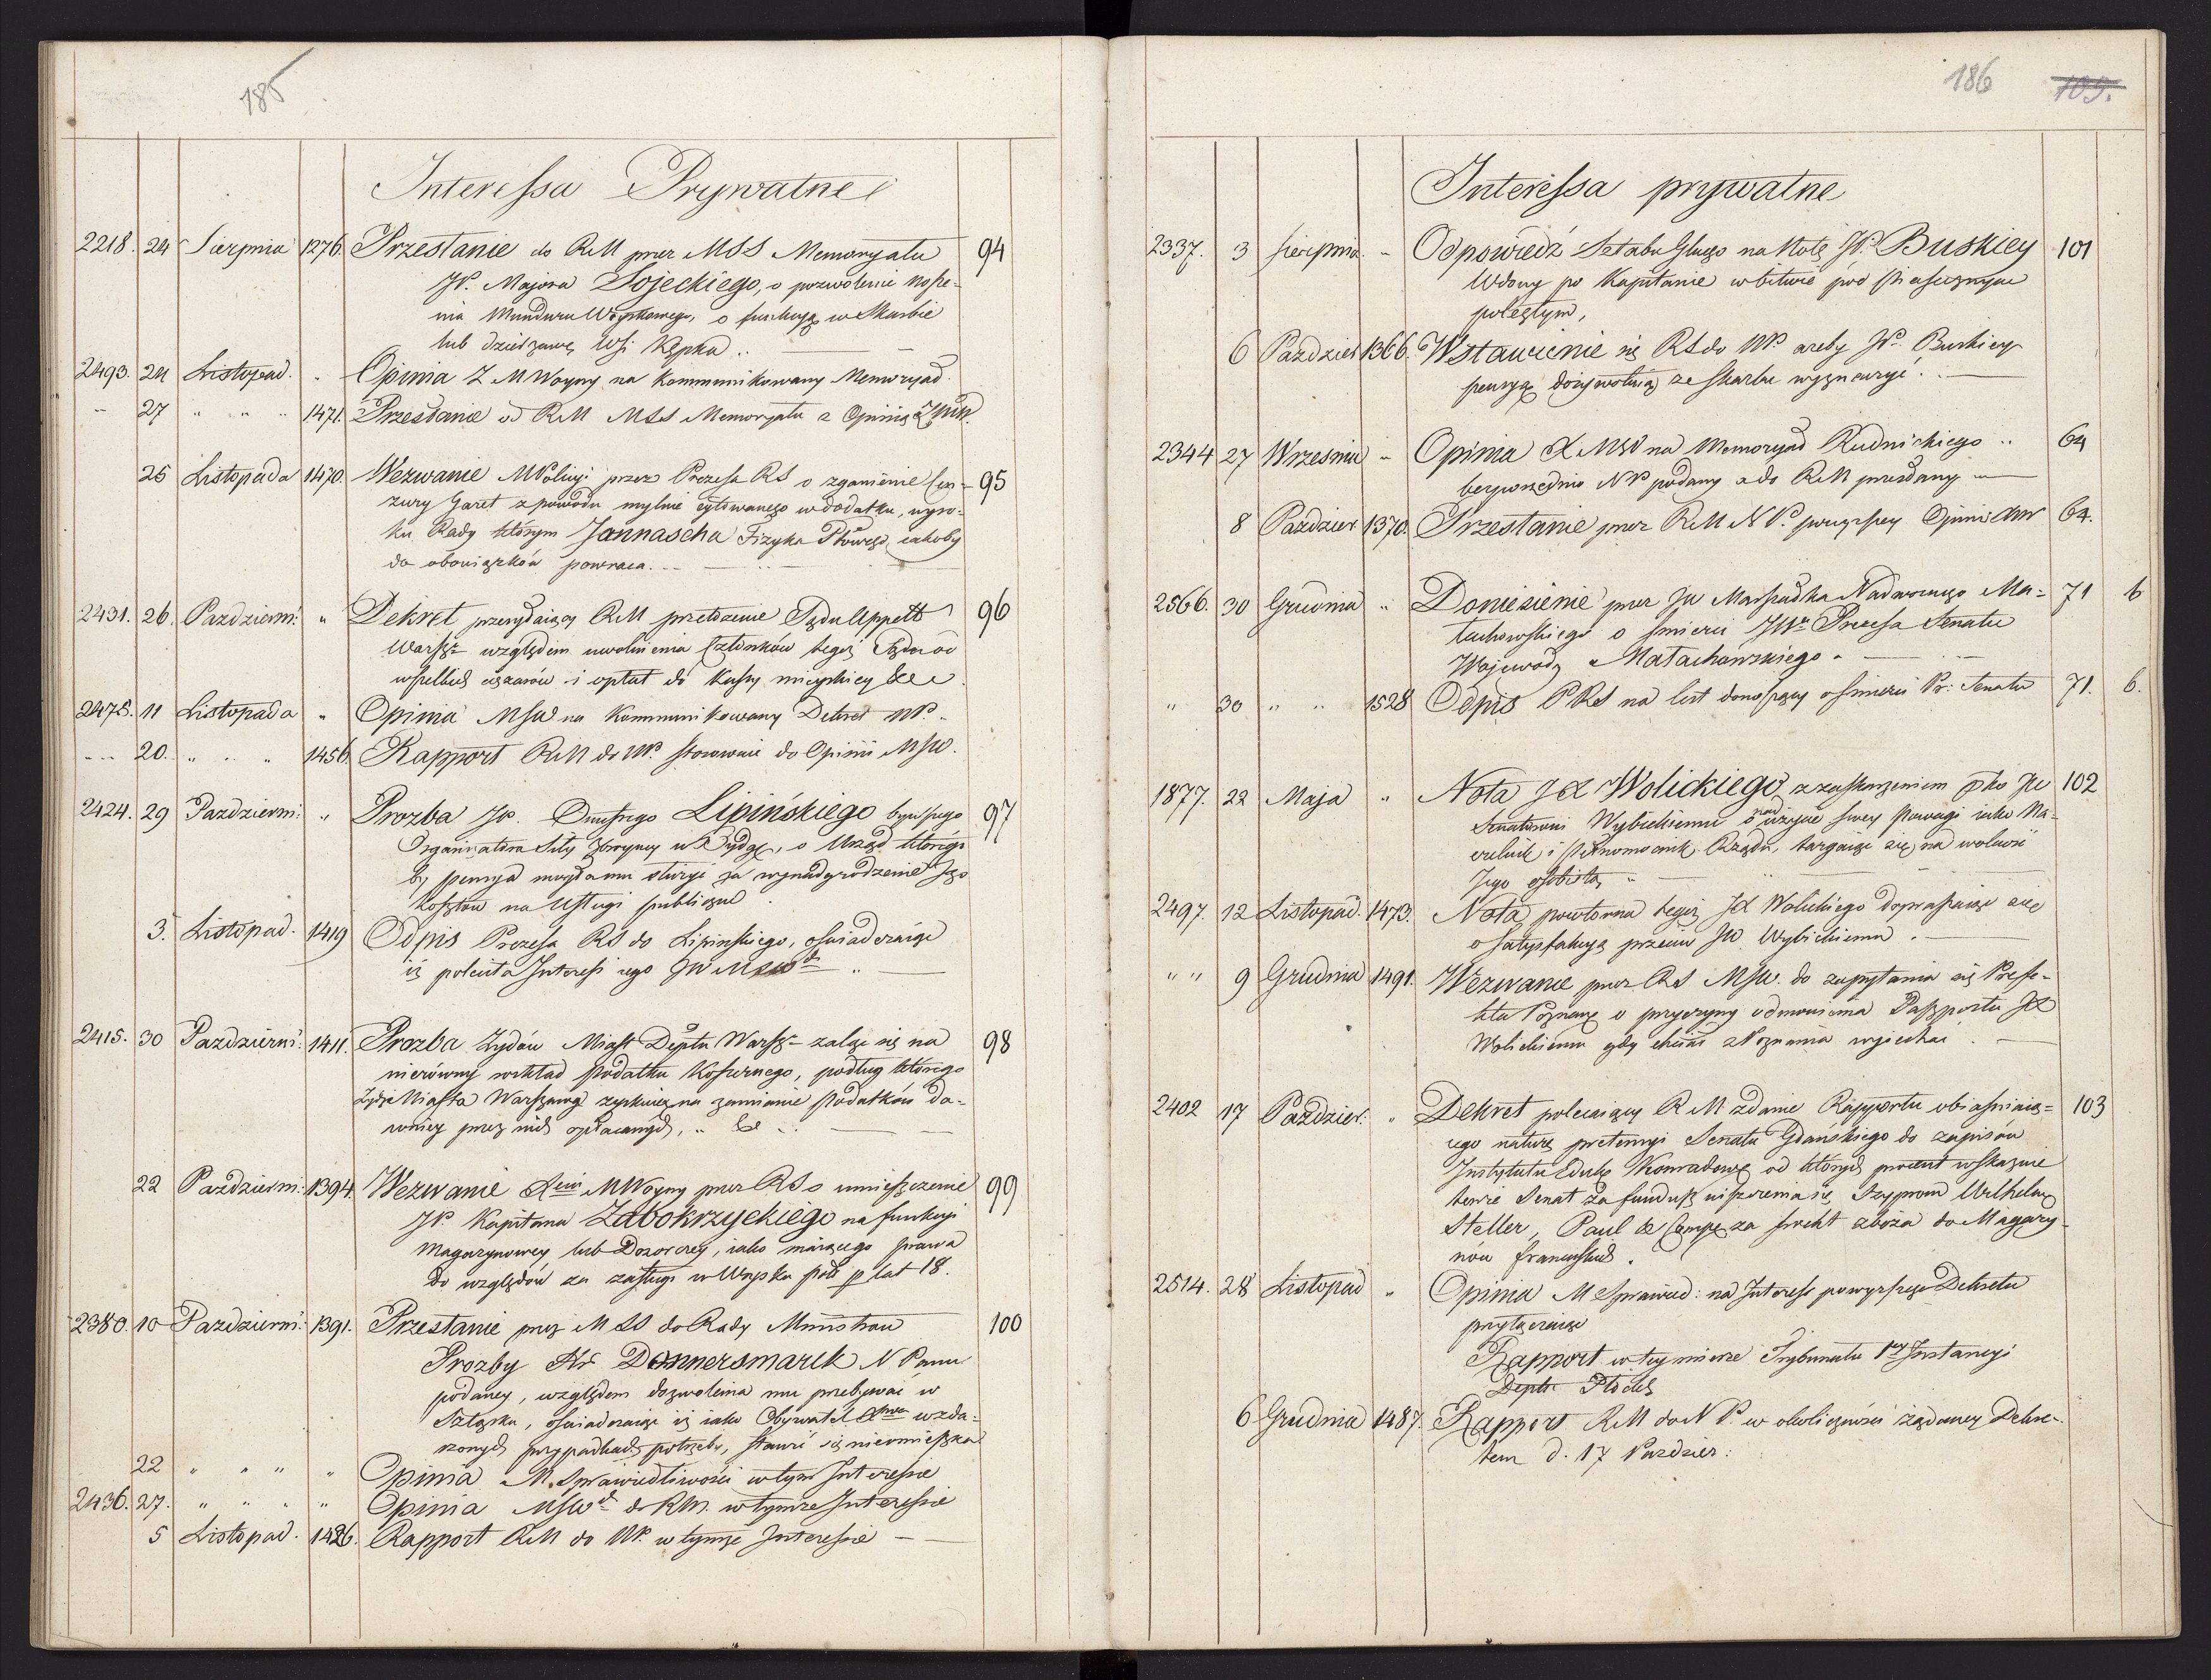 185
Interessa Prywatne
2218. 24 Sierpnia 1276. Przesłanie do RM przez MSS Memoryału 94
JP. Majora Sojeckiego, o pozwolenie nosze-
nia Munduru Woyskowego, o funkcyą w Skarbie
lub dzierzawę Wsi Kępka ..
2493. 24 Listopad. " Opinia Z M Woyny na kommunikowany Memoryał
" 27 " " " 1471. Przesłanie od RM MSS Memoryału z Opinią ZMW.
25 Listopada 1470. Wezwanie MPolicyi przez Prezesa RS o zganienie Cen- 95
zury Gazet z powodu mylnie cytowanego w dodatku, wyro-
ku Rady którym Jannascha Fizyka Płowcgo, iakoby
do obowiązków powraca.
2431. 26. Pazdziern: " Dekret przesyłaiący RM przełożenie Sądu Appell 96
Warsz= względem uwolnienia Członków tegoż Sądu od
wszelkich ciężarów i opłat do Kassy mieyskiey &c
2475. 11 Listopada " Opinia MSW na kommunikowany Dekret NP.
" 20. " " " 1456. Rapport RM do NP. stosownie do Opinii MSW.
2424. 29 Pazdziern: " Prozba JP. Onufrego Lipińskiego bywszego 97
Organizatora Siły zbroyney w Bydgo, o Urząd którego
by pensya mogła mu służyć za wynadgrodzenie Jego
kosztów na Usługi publiczne.
3. Listopad. 1419 Odpis Prezesa RS do Lipinskiego, oświadczaiąc
iż poleciła Interess iego JW MSW
2415. 30 Pazdziern: 1411. Prozba Zydów Miast Deptu Warsz= żaląc się na 98
nierówny rozkład podatku Koszernego, podług którego
Zydzi Miasta Warszawy zyskuią na zamianie podatków da-
wniey przez nich opłacanych, " &c
22 Pazdziern: 1394. Wezwanie MWoyny przez RS o umieszczenie 99
JP. Kapitana Zabokrzyckiego na funkcyi
Magazynowey lub Dozorczey, iako maiącego prawa
do względów za zasługi w Woysku Pols p lat 18.
2380. 10 Pazdziern: 1391. Przesłanie przez MSS do Rady Ministrow 100
Prozby Hr Donnersmarck N Panu
podaney, względem dozwolenia mu przebywać w
Szląsku, oświadczaiąc iż iako Obywatel wzda-
rzonych przypadkach potrzeby, stawić się nieomieszka
22 " " " " Opinia M. Sprawiedliwości w tym Interessie
2436. 27. " " " " Opinia MSW do RM. w tymże Interessie
5 Listopad. 1426. Rapport RM do NP. w tymże Interessie
186 109.
Interessa prywatne
2337. 3 Sierpnia. " Odpowiedź Sztabu Głwgo na Notę JP. Buskiey 101
Wdowy po Kapitanie w bitwie pod Piasecznym
poległym,
6 Pazdzier 1366. Wstawienie się RS do NP. azeby JP. Buskiey
pensyą dożywotnią ze Skarbu wyznaczyć.
2344 27 Wrzesnia " Opinia MSW na Memoryał Rudnickiego " 64
bezposrednio NP podany a do RM przesłany
8 Pazdzier 1370. Przesłanie przez RM N P. powyższey Opinii 64.
2566. 30 Grudnia " Doniesienie przez JW Marszałka Nadwornego Ma= 71 b
łachowskiego o smierci JWo Prezesa Senatu
Wojewody Małachowskiego.
" 30 " " 1528 Odpis PRS na list donoszący o smierci Pr: Senatu 71. b.
1877. 22 Maja " Nota JX Wolickiego z zaskarzeniem pko JW 102
Senatorowi Wybickiemu o nad użycie swey Powagi iako Na-
czelnik i Pełnomocnik Rządu, targaiąc się na wolność
Jego osobistą "
2497. 12 Listopad. 1473. Nota powtorna tegoż JX Wolickiego dopraszaiąc się
o Satysfakcyą przeciw JW Wybickiemu.
" " 9 Grudnia 1491. Wezwanie przez RS MSW. do zapytania się Prefe-
kta Poznang o przyczyny odmowienia Paszportu JX
Wolickiemu gdy chciał z Poznania wyjechać.
2402 17 Pazdzier. " Dekret polecaiący RM zdanie Rapportu obiaśniaią= 103
cego naturę pretensyi Senatu Gdańskiego do zapisów
Instytutu Eduko Konradowgo od których procent wskazuie
tenże Senat za fundusz uiszczenia się Szyprom Wilhelm
Steller, Paul & Comp za fracht zboża do Magazy-
nów francuskich.
2514. 28 Listopad " Opinia M Sprawied: na Interess powyższego Dekretu
przyłączaiąc
Rapport w tey mierze Trybunału 1ey Instancyi
Deptu Płock
6 Grudnia 1487. Rapport RM do N P. w okoliczności ządaney Dekre-
tem d. 17 Pazdzier: